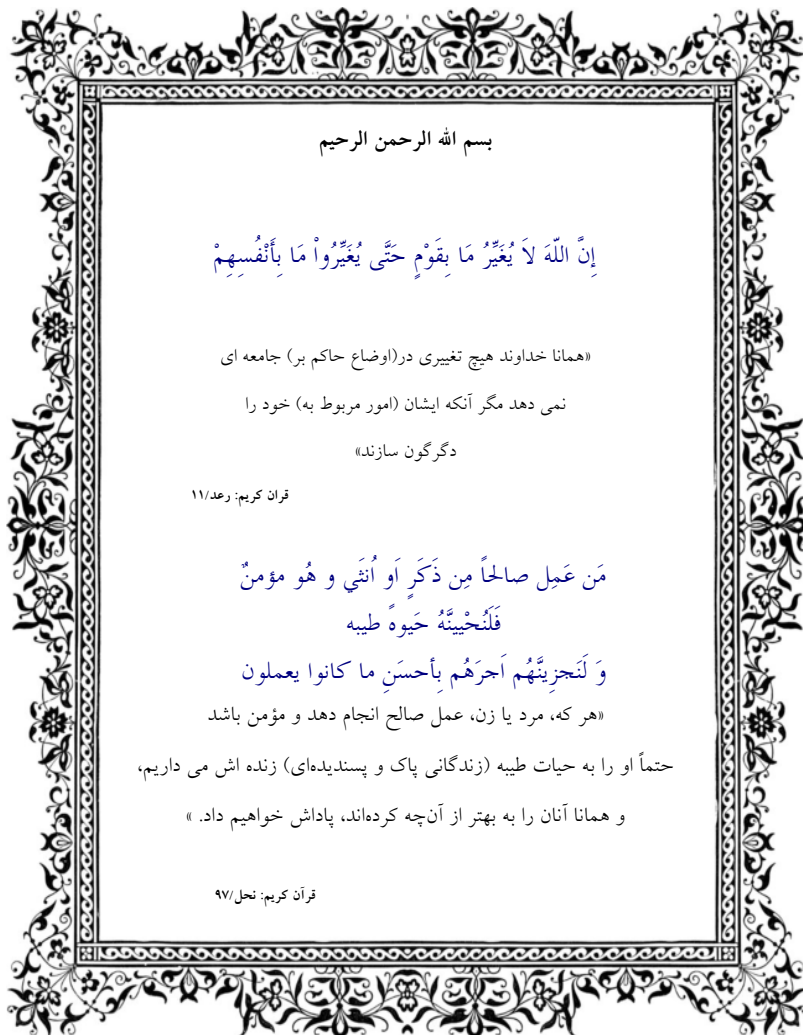 بسم الله الرحمن الرحیم
إِنَّ اللّهَ لاَ يُغَيِّرُ مَا بِقَوْمٍ حَتَّى يُغَيِّرُواْ مَا بِأَنْفُسِهِمْ
«همانا خداوند هیچ تغییری در(اوضاع حاکم بر) جامعه ای
نمی دهد مگر آنکه ایشان (امور مربوط به) خود را
دگرگون سازند»
قران کریم: رعد/۱۱
مَن عَمِل صالحاً مِن ذَكَرٍ اَو اُنثَي و هُو مؤمنٌ
فَلَنُحْيينَّهُ حَيوهً طيبه
وَ لَنَجزِينَّهُم اَجرَهُم بِأحسَنِ ما كانوا يعملون
«هر که، مرد یا زن، عمل صالح انجام دهد و مؤمن باشد
حتماً او را به حیات طیبه (زندگانی پاک و پسندیده‌ای) زنده اش می داریم،
و همانا آنان را به بهتر از آن‌چه کرده‌اند، پاداش خواهیم داد. »
قرآن کریم: نحل/۹۷